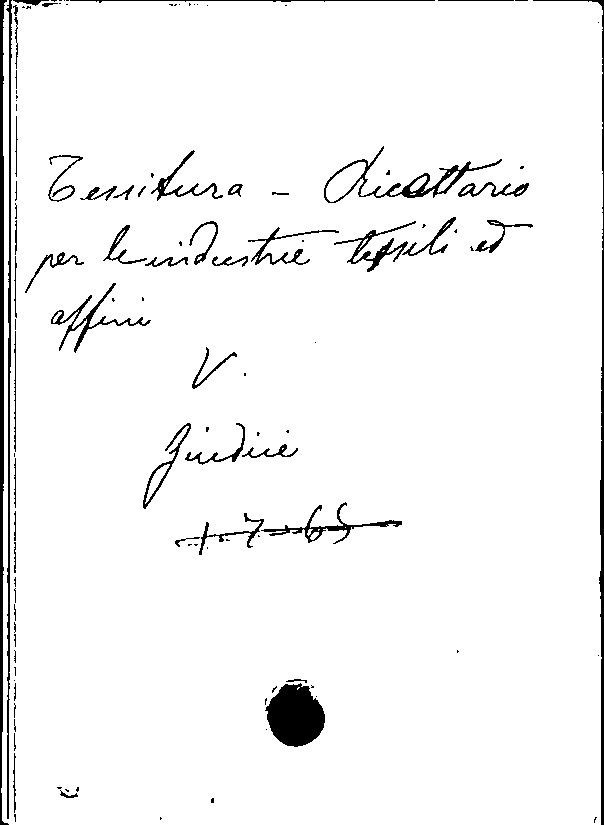 Tessitura - Ricettario
per le industrie tessili ed
affini
V.
Giudice
1-7-65